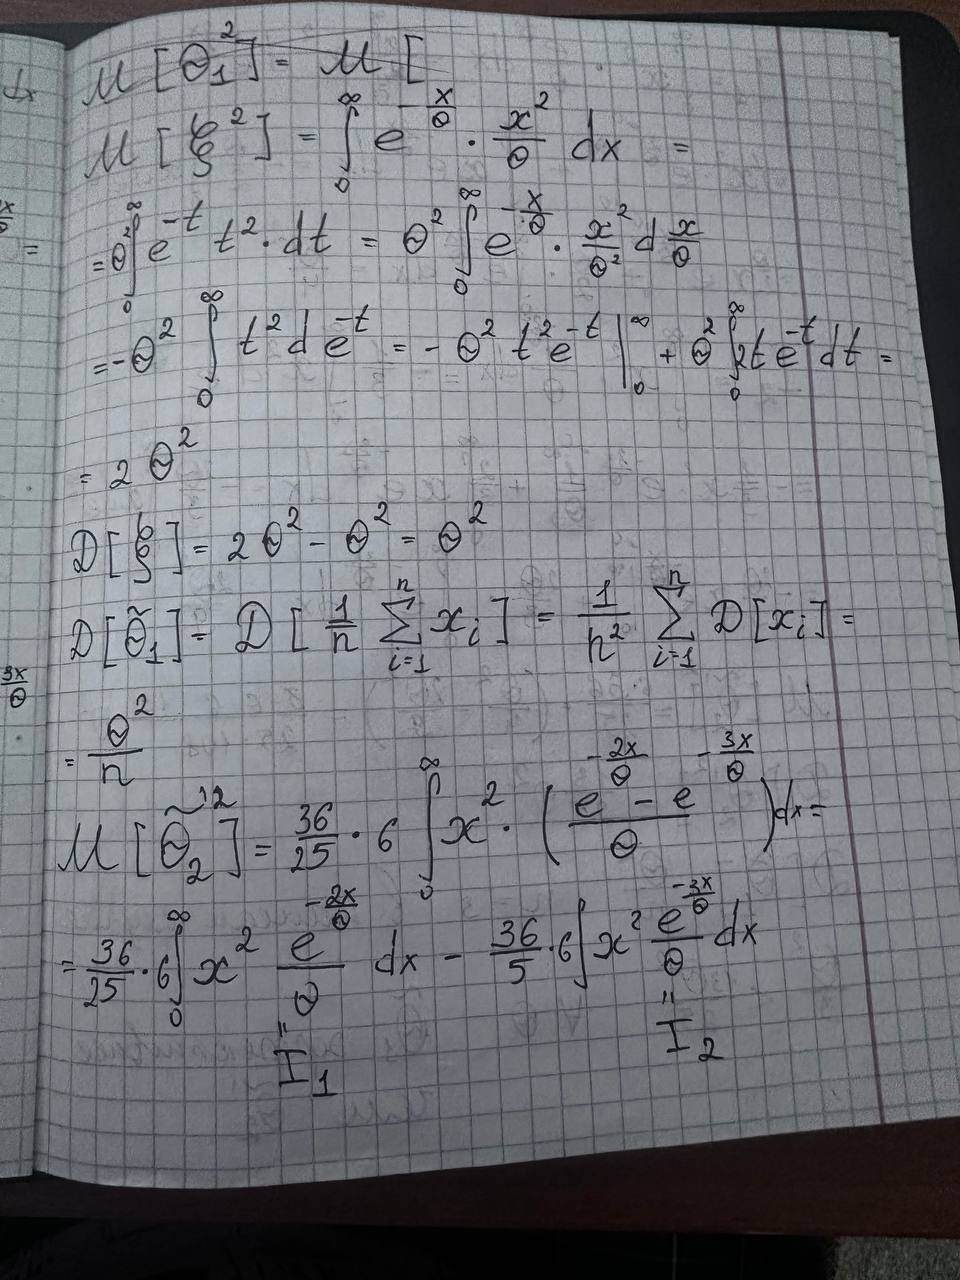 M[Θ₁²] = M[
M[ξ²] = ∫₀^∞ e^(-x/Θ) · x²/Θ dx =
= Θ² ∫₀^∞ e^(-t) t² · dt = Θ² ∫₀^∞ e^(-x/Θ) · x²/Θ² d x/Θ
= -Θ² ∫₀^∞ t² d e^(-t) = -Θ² t² e^(-t) |₀^∞ + Θ² ∫₀^∞ 2t e^(-t) dt =
= 2Θ²
D[ξ] = 2Θ² - Θ² = Θ²
D[Θ̃₁] = D[1/n ∑_(i=1)^n xᵢ] = 1/n² ∑_(i=1)^n D[xᵢ] =
= Θ²/n
M[Θ̃₂'²] = 36/25 · 6 ∫₀^∞ x² · ((e^(-2x/Θ) - e^(-3x/Θ))/Θ) dx =
= 36/25 · 6 ∫₀^∞ x² e^(-2x/Θ)/Θ dx - 36/5 · 6 ∫ x² e^(-3x/Θ)/Θ dx
" "
I₁ I₂
dx
=
3x/Θ